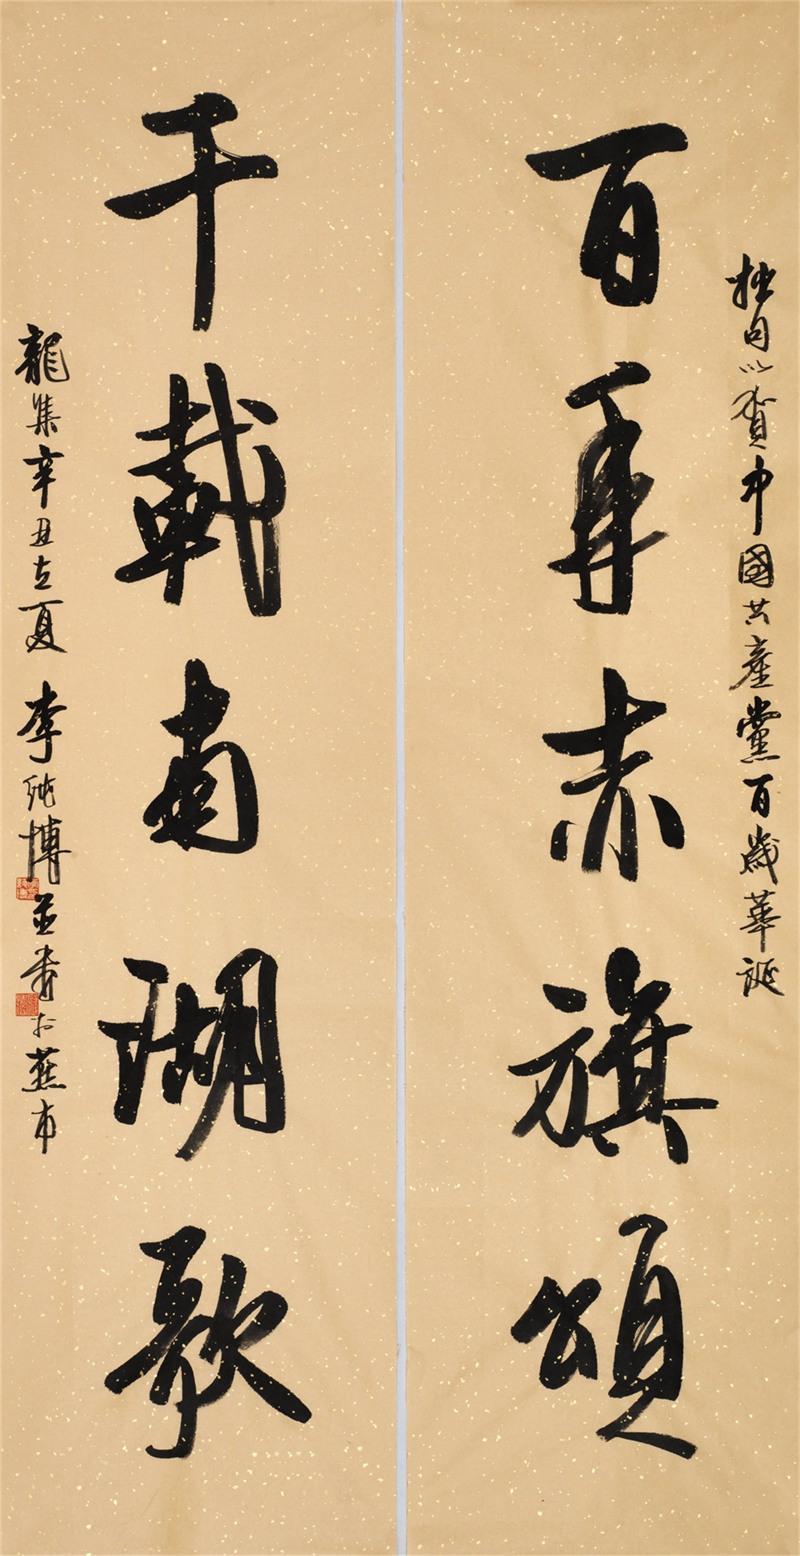 拙句以賀中國共產黨百歲華誕
百年赤旗頌
千載南湖歌
龍集辛丑立夏 李純博並書於燕市